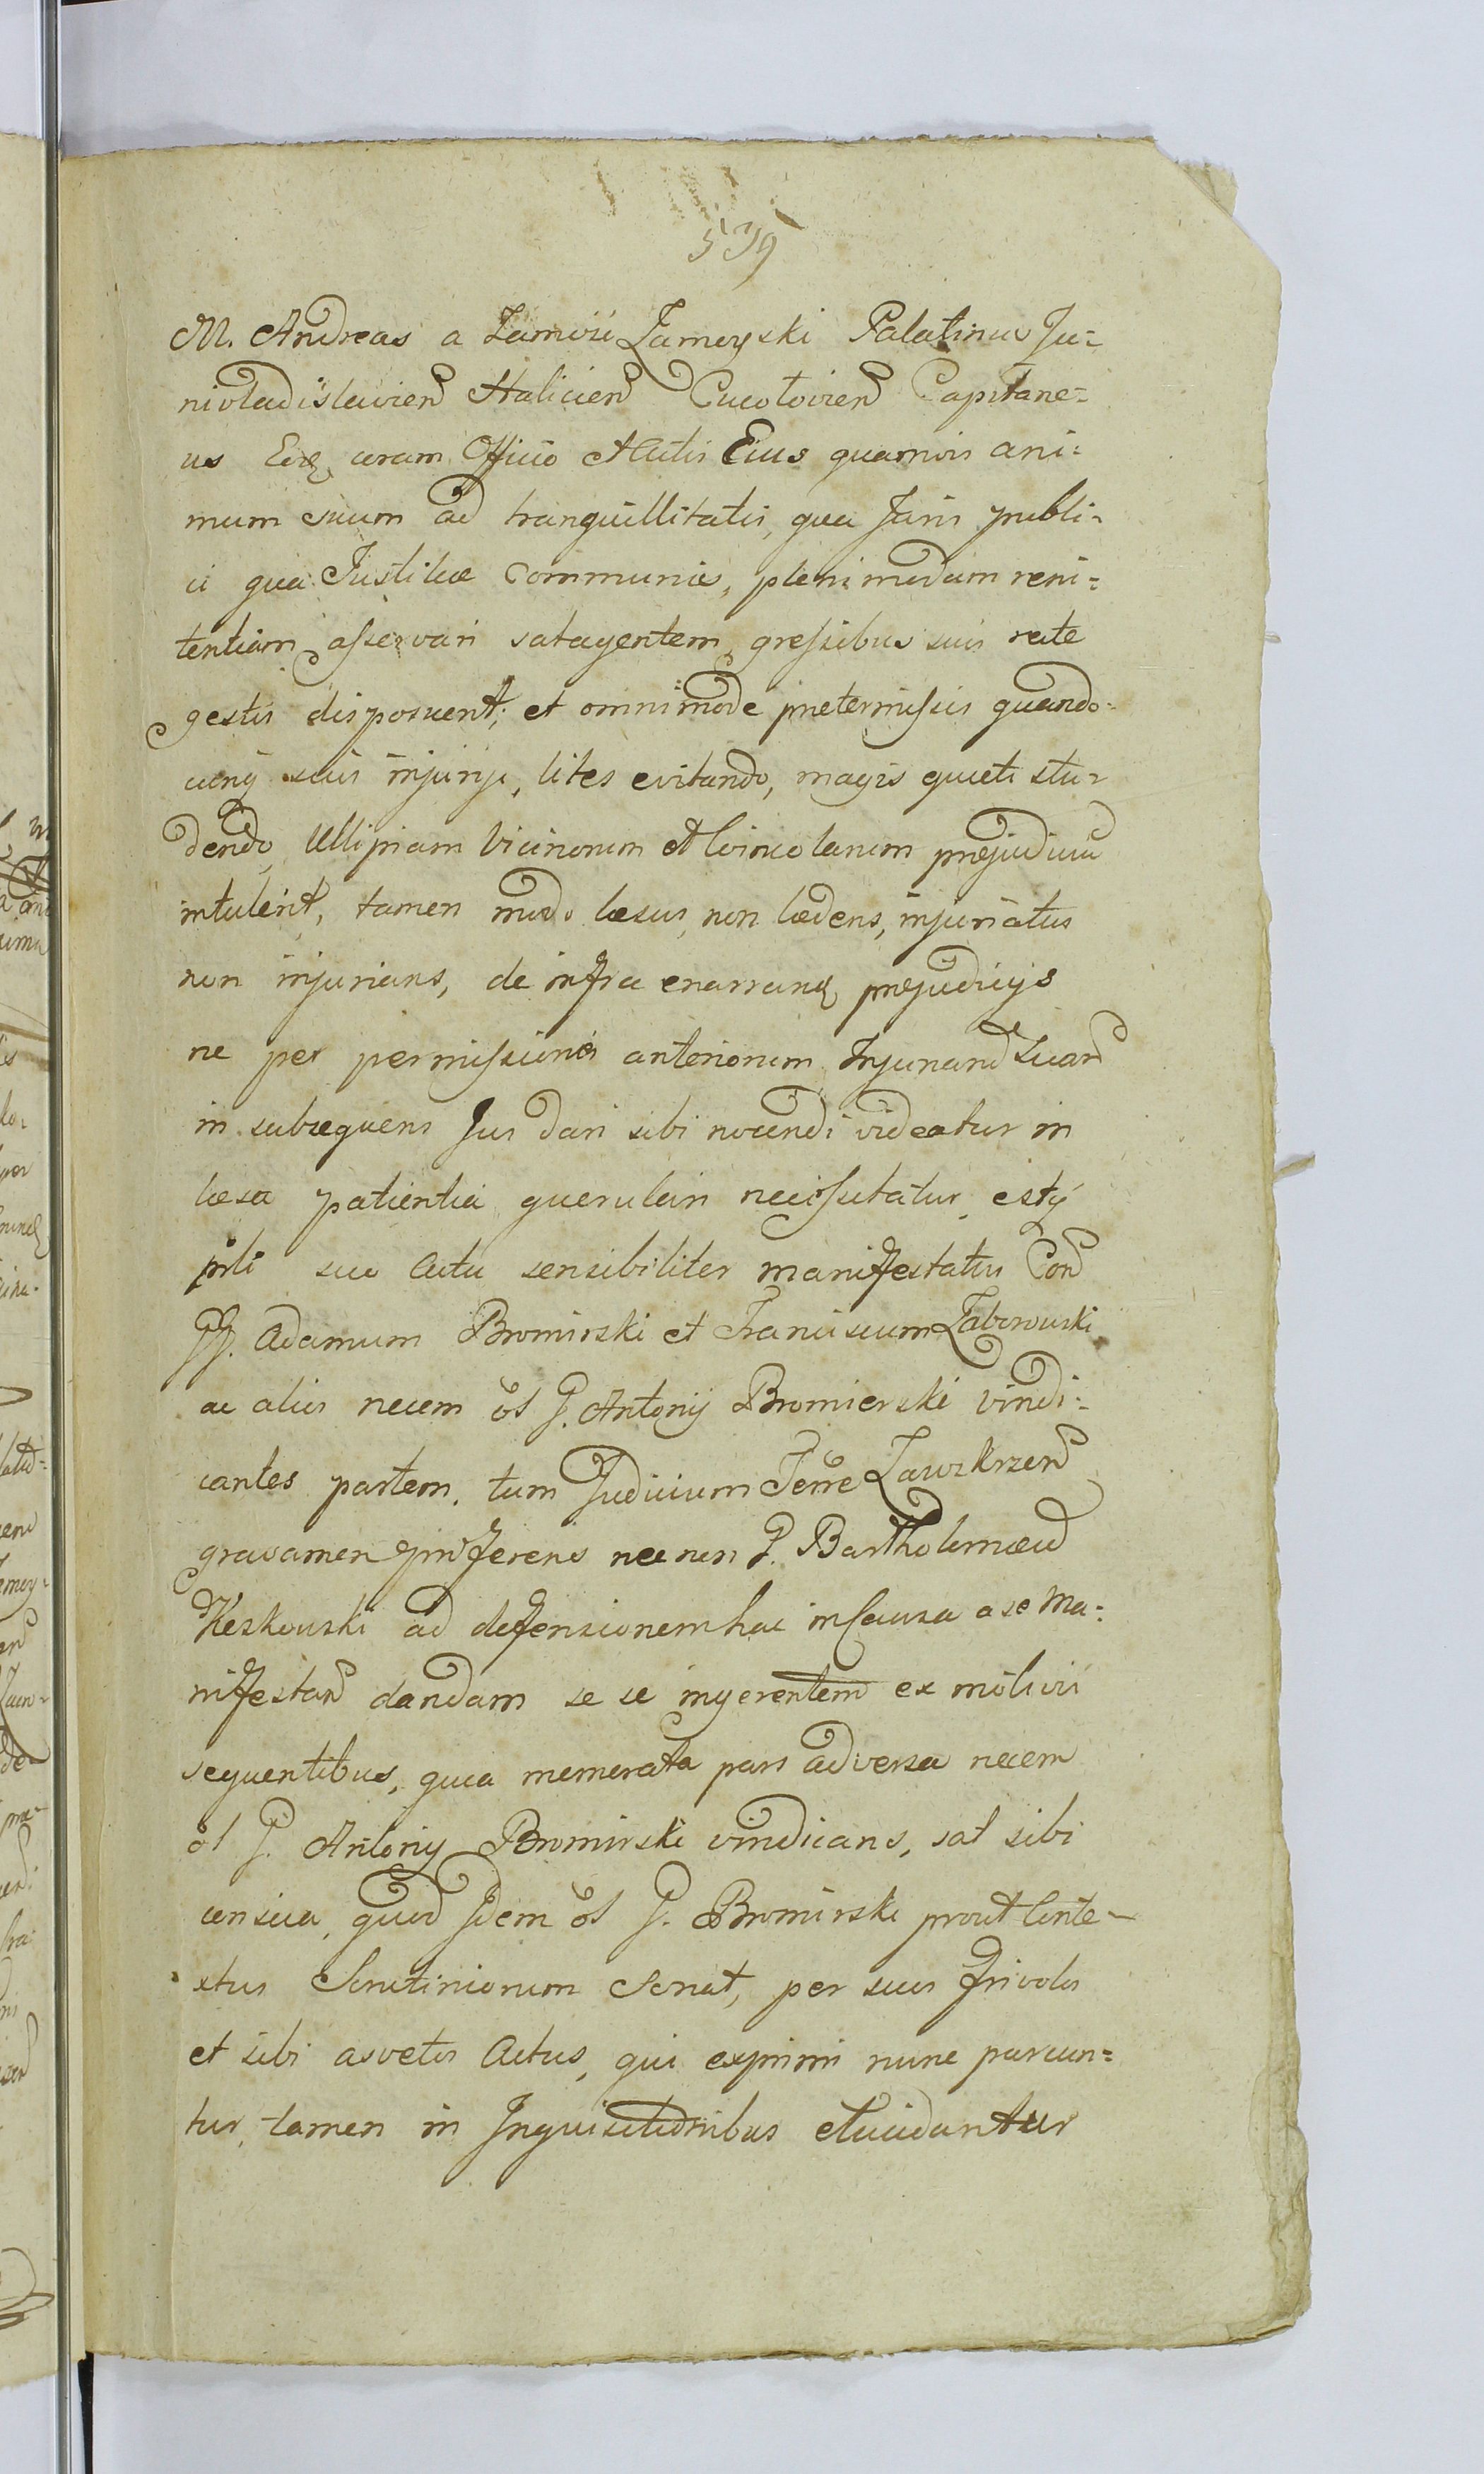 539
M. Andreas a Zamoście Zamoyski Palatinus Ju-
nivladislavien Halicien Capitane-
us Eoq coram Officio Actis Eius quamvis ani-
mum suum ad tranquillitatis, qua Juris publi-
ci qua Justitiæ Communis, plenimodam reni-
tentiam asservari satagentem, gressibus suis recte
gestis disposuerit, et omnimode prætermissis quando-
cunq suis injurijs, lites evitando, magis quieti stu-
dendo, Ulli priam Vicinorum et Coincolarum præjudiciu
intulerit, tamen modo læsus, non lædens, injuriatus
non injurians, de infra enarrand præjudicijs
ne per permissiones anteriorum Injuriand Suar
in subsequens Jus dari sibi nocendi videatur in
læsa patientia querulari necessitatur, estq
prti suo Actu sensibiliter manifestatur Con
GG. Adamum Bromirski et Franciscum Zaborowski
ac alios necem ol G. Antonij Bromierski vindi-
cantes partem, tum Judicium Terre Zawzkrzen
gravamen proferens nec non G. Bartholomæu
Keskowski ad defensionem hac in Causa a se Ma-
nifestan dandam se se ingerentem ex motivis
sequentibus, quia memorata pars adversa necem
ol G. Antonij Bromirski vindicans, sat sibi
conscia, quod Idem ol G. Bromirski prout Conte-
xtus Scrutiniorum Sonat, per suos frivolos
et sibi asvetos Actus, qui exprimi nunc parcun-
tur, tamen in Inquisitionibus elucidantur